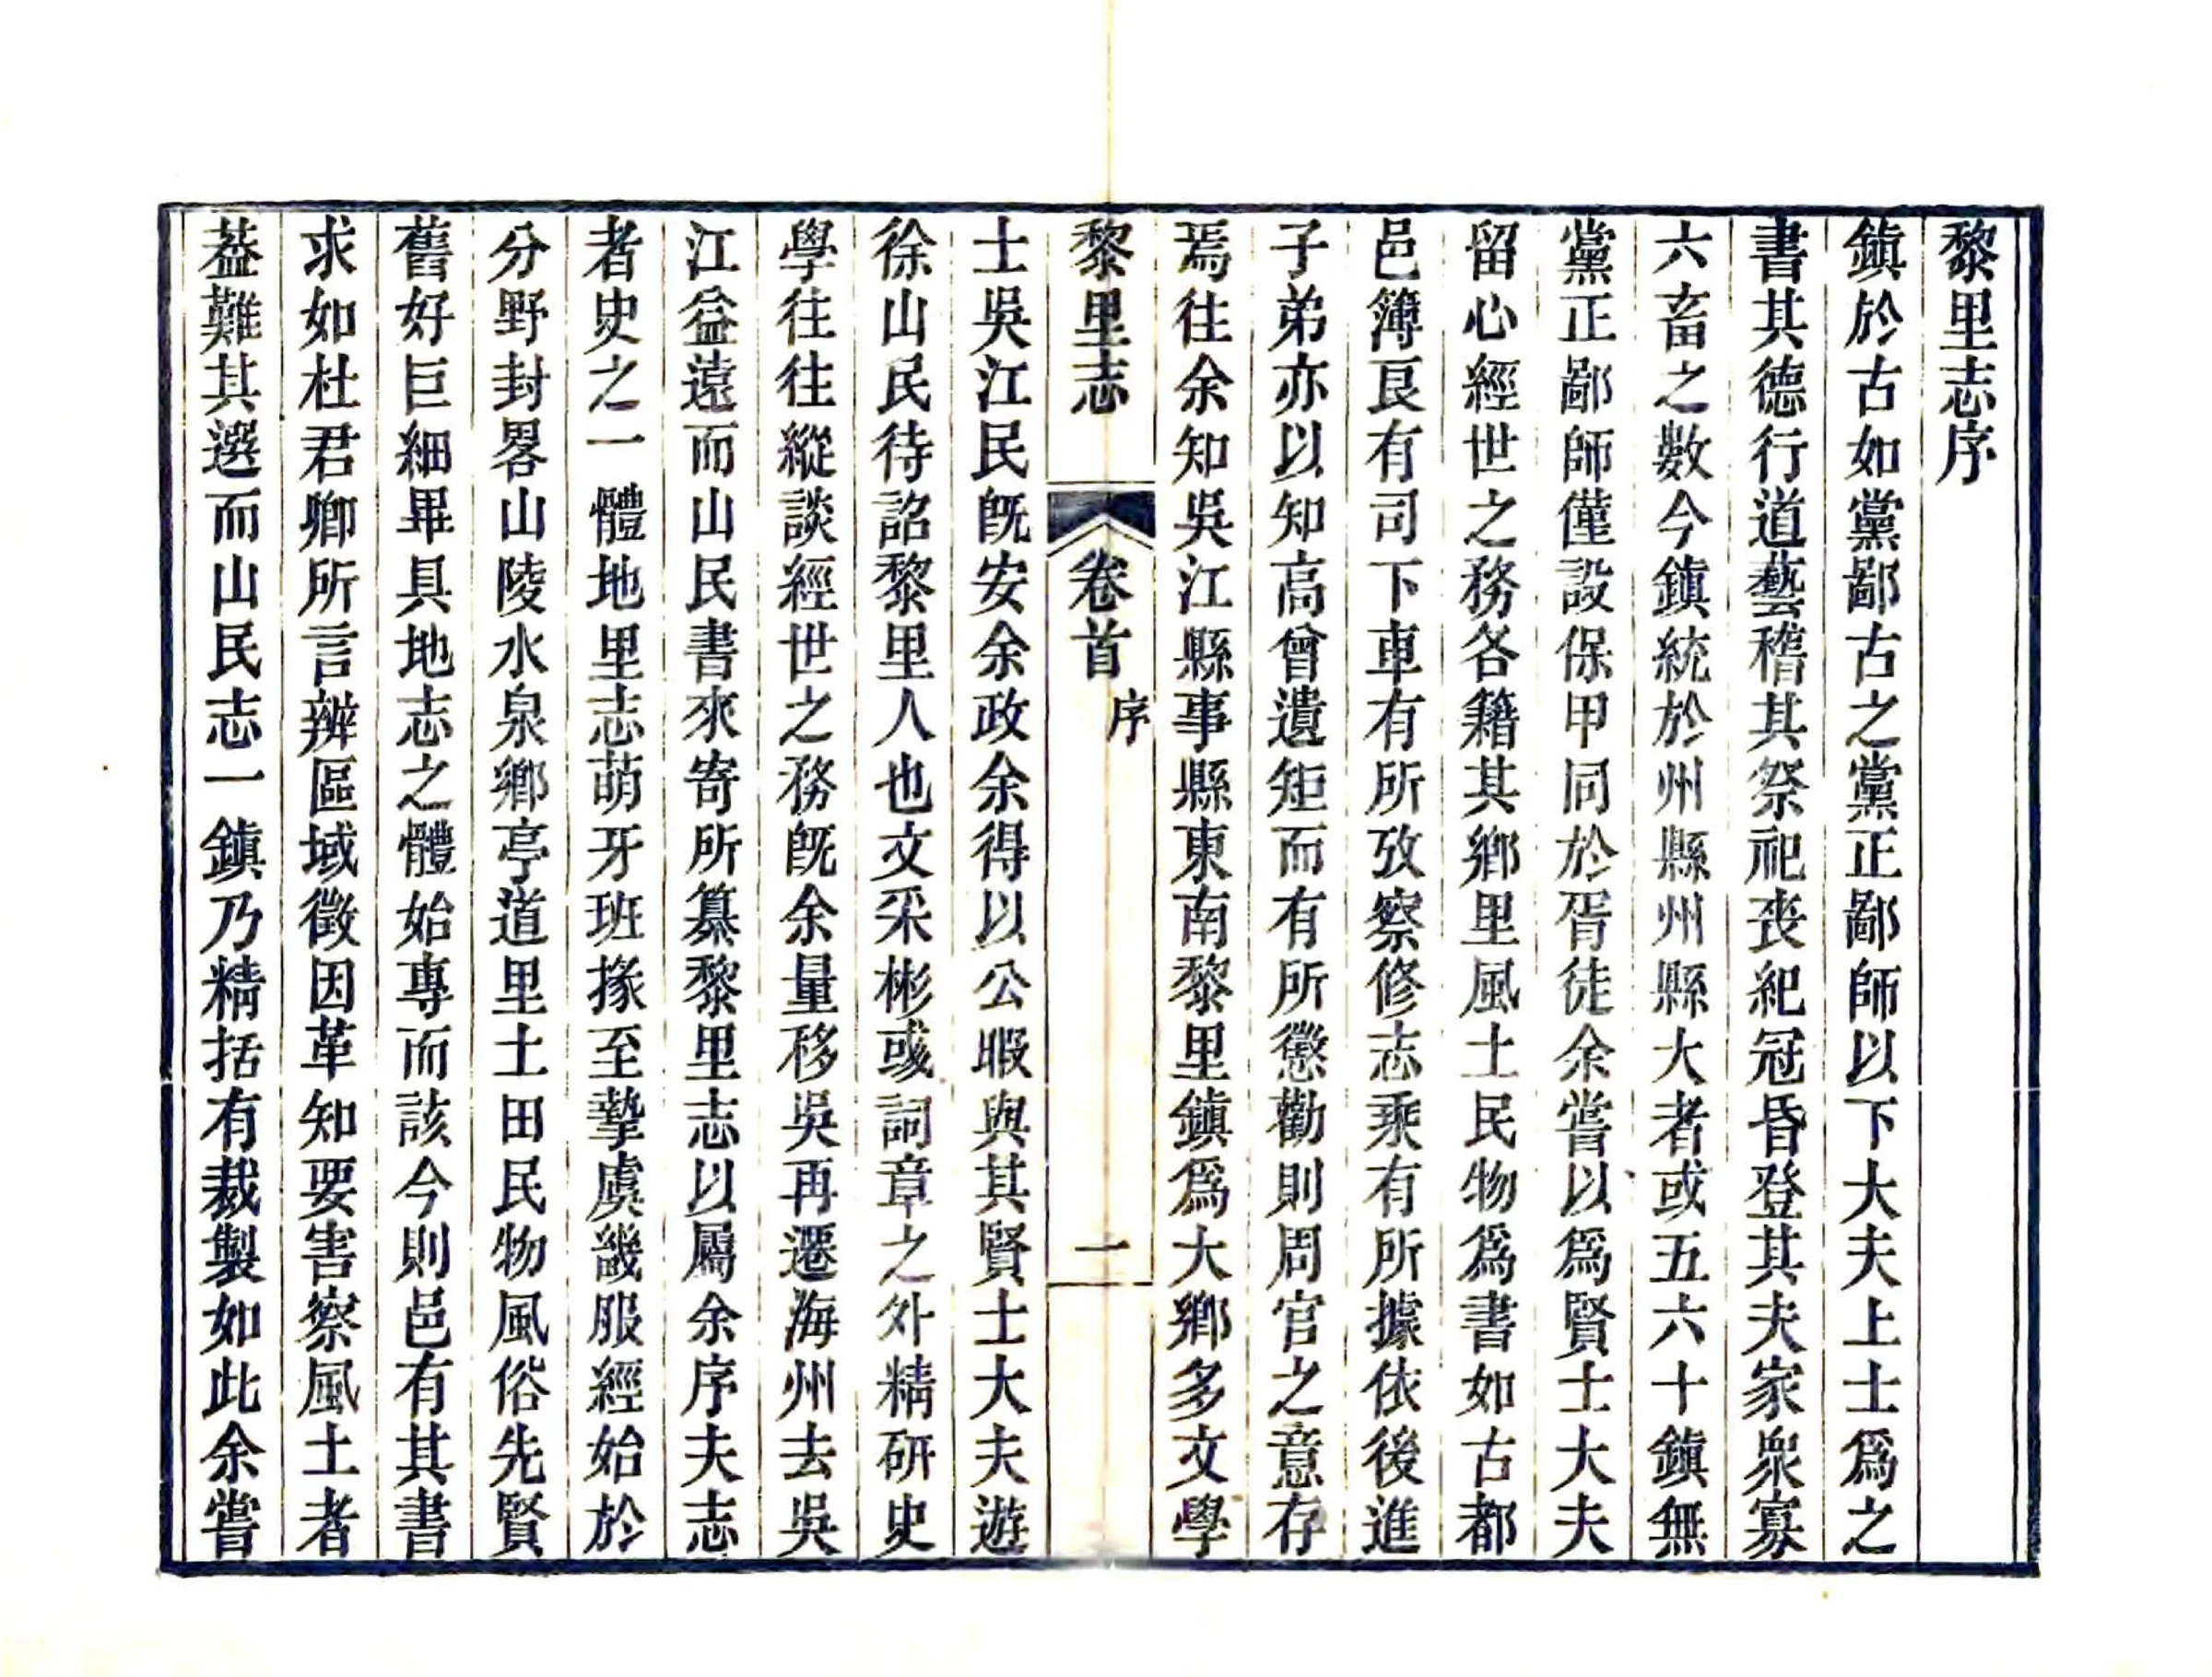 黎里志序
鎭於古如黨鄙古之黨正鄙師以下大夫上士爲之
書其德行道藝稽其祭祀喪紀冠昏登其夫家衆寡
六畜之數今鎭統於州縣州縣大者或五六十鎭無
黨正鄙師僅設保甲同於胥徒余嘗以爲賢士大夫
留心經世之務各籍其鄉里風土民物爲書如古都
邑簿良有司下車有所攷察修志乘有所據依後進
子弟亦以知高曾遺矩而有所懲勸則周官之意存
焉往余知吳江縣事縣東南黎里鎭爲大鄉多文學
黎里志
卷首
序
一
士吳江民旣安余政余得以公暇與其賢士大夫遊
徐山民待詔黎里人也文采彬彧詞章之外精研史
學往往縱談經世之務旣余量移吳再遷海州去吳
江益遠而山民書來寄所纂黎里志以屬余序夫志
者史之一體地里志萌牙班掾至摯虞畿服經始於
分野封畧山陵水泉鄉亭道里土田民物風俗先賢
舊好巨細畢具地志之體始專而該今則邑有其書
求如杜君卿所言辨區域徵因革知要害察風土者
葢難其選而山民志一鎭乃精括有裁製如此余嘗